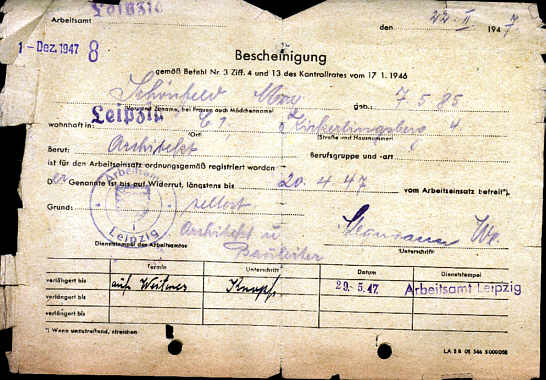 Arbeitsamt Leipzig den 22. II. 1947
1-Dez. 1947 8
Bescheinigung
gemäß Befehl Nr. 3 Ziff. 4 und 13 des Kontrollrates vom 17 1. 1946
Schönfeld Max geb.: 7. 5 85
(Vorname Zuname, bei Frauen auch Mädchenname)
wohnhaft in: Leipzig C 1, 4
(Ort) (Straße und Hausnummer)
Beruf: Architekt Berufsgruppe und -art
ist für den Arbeitseinsatz ordnungsgemäß registriert worden
er Genannte ist bis auf Widerruf, längstens bis 20. 4. 47 vom Arbeitseinsatz befreit*).
Grund: selbst.
Architekt u.
Bauleiter
Arbeitsamt Leipzig
Dienststempel des Arbeitsamtes Unterschrift
Termin Unterschrift Datum Dienststempel
verlängert bis auf Weiteres Knopf 29. 5. 47. Arbeitsamt Leipzig
verlängert bis
verlängert bis
*) Wenn unzutreffend, streichen